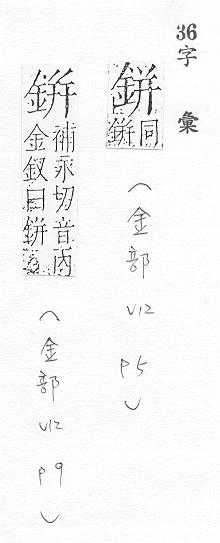 36
字彙
鉼
同鉼
(金部 V12 P5)
鉼
補永切音丙
金釵曰鉼
(金部 V12 P9)